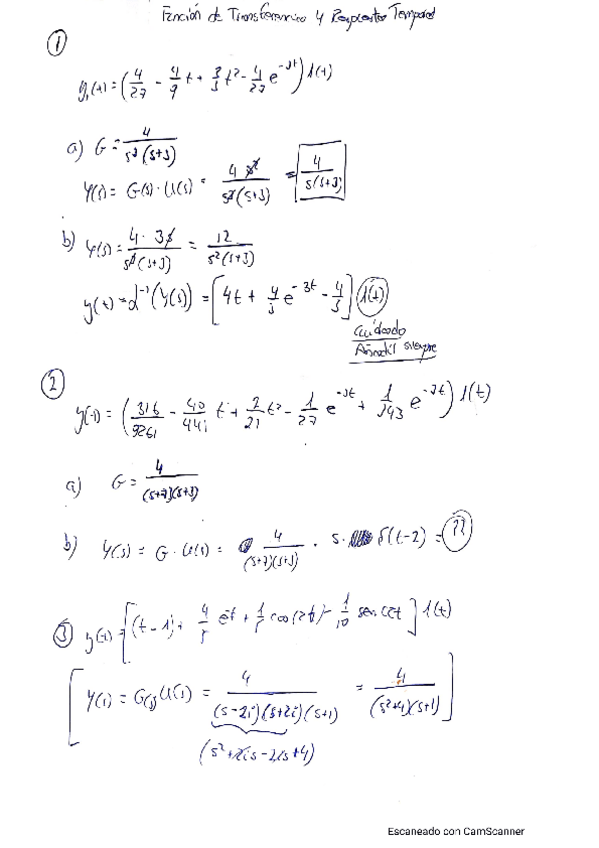 Función de Transferencia y Respuesta Temporal
①
y₁(t) = (4/27 - 4/9 t + 2/3 t² - 4/27 e^-3t) 1(t)
a) G = 4/(s²(s+3))
Y(s) = G(s) · U(s) = 4 s²/(s³(s+3)) = 4/(s(s+3))
b) Y(s) = 4 · 3s/(s³(s+3)) = 12/(s²(s+3))
y(t) = L⁻¹(Y(s)) = [4t + 4/3 e^-3t - 4/3] 1(t)
Cuidado
Añadir siempre
②
y(t) = (316/9261 - 40/441 t + 2/21 t² - 1/27 e^-3t + 1/343 e^-7t) 1(t)
a) G = 4/((s+7)(s+3))
b) Y(s) = G · U(s) = 4/((s+7)(s+3)) · 5 · δ(t-2) = ??
③ y(t) = [(t-1) + 4/5 e^-t + 1/5 cos(2t) - 1/10 sen(2t] 1(t)
[Y(s) = G(s) U(s) = 4/((s-2i)(s+2i)(s+1)) = 4/((s²+4)(s+1))]
(s²+2is-2is+4)
Escaneado con CamScanner